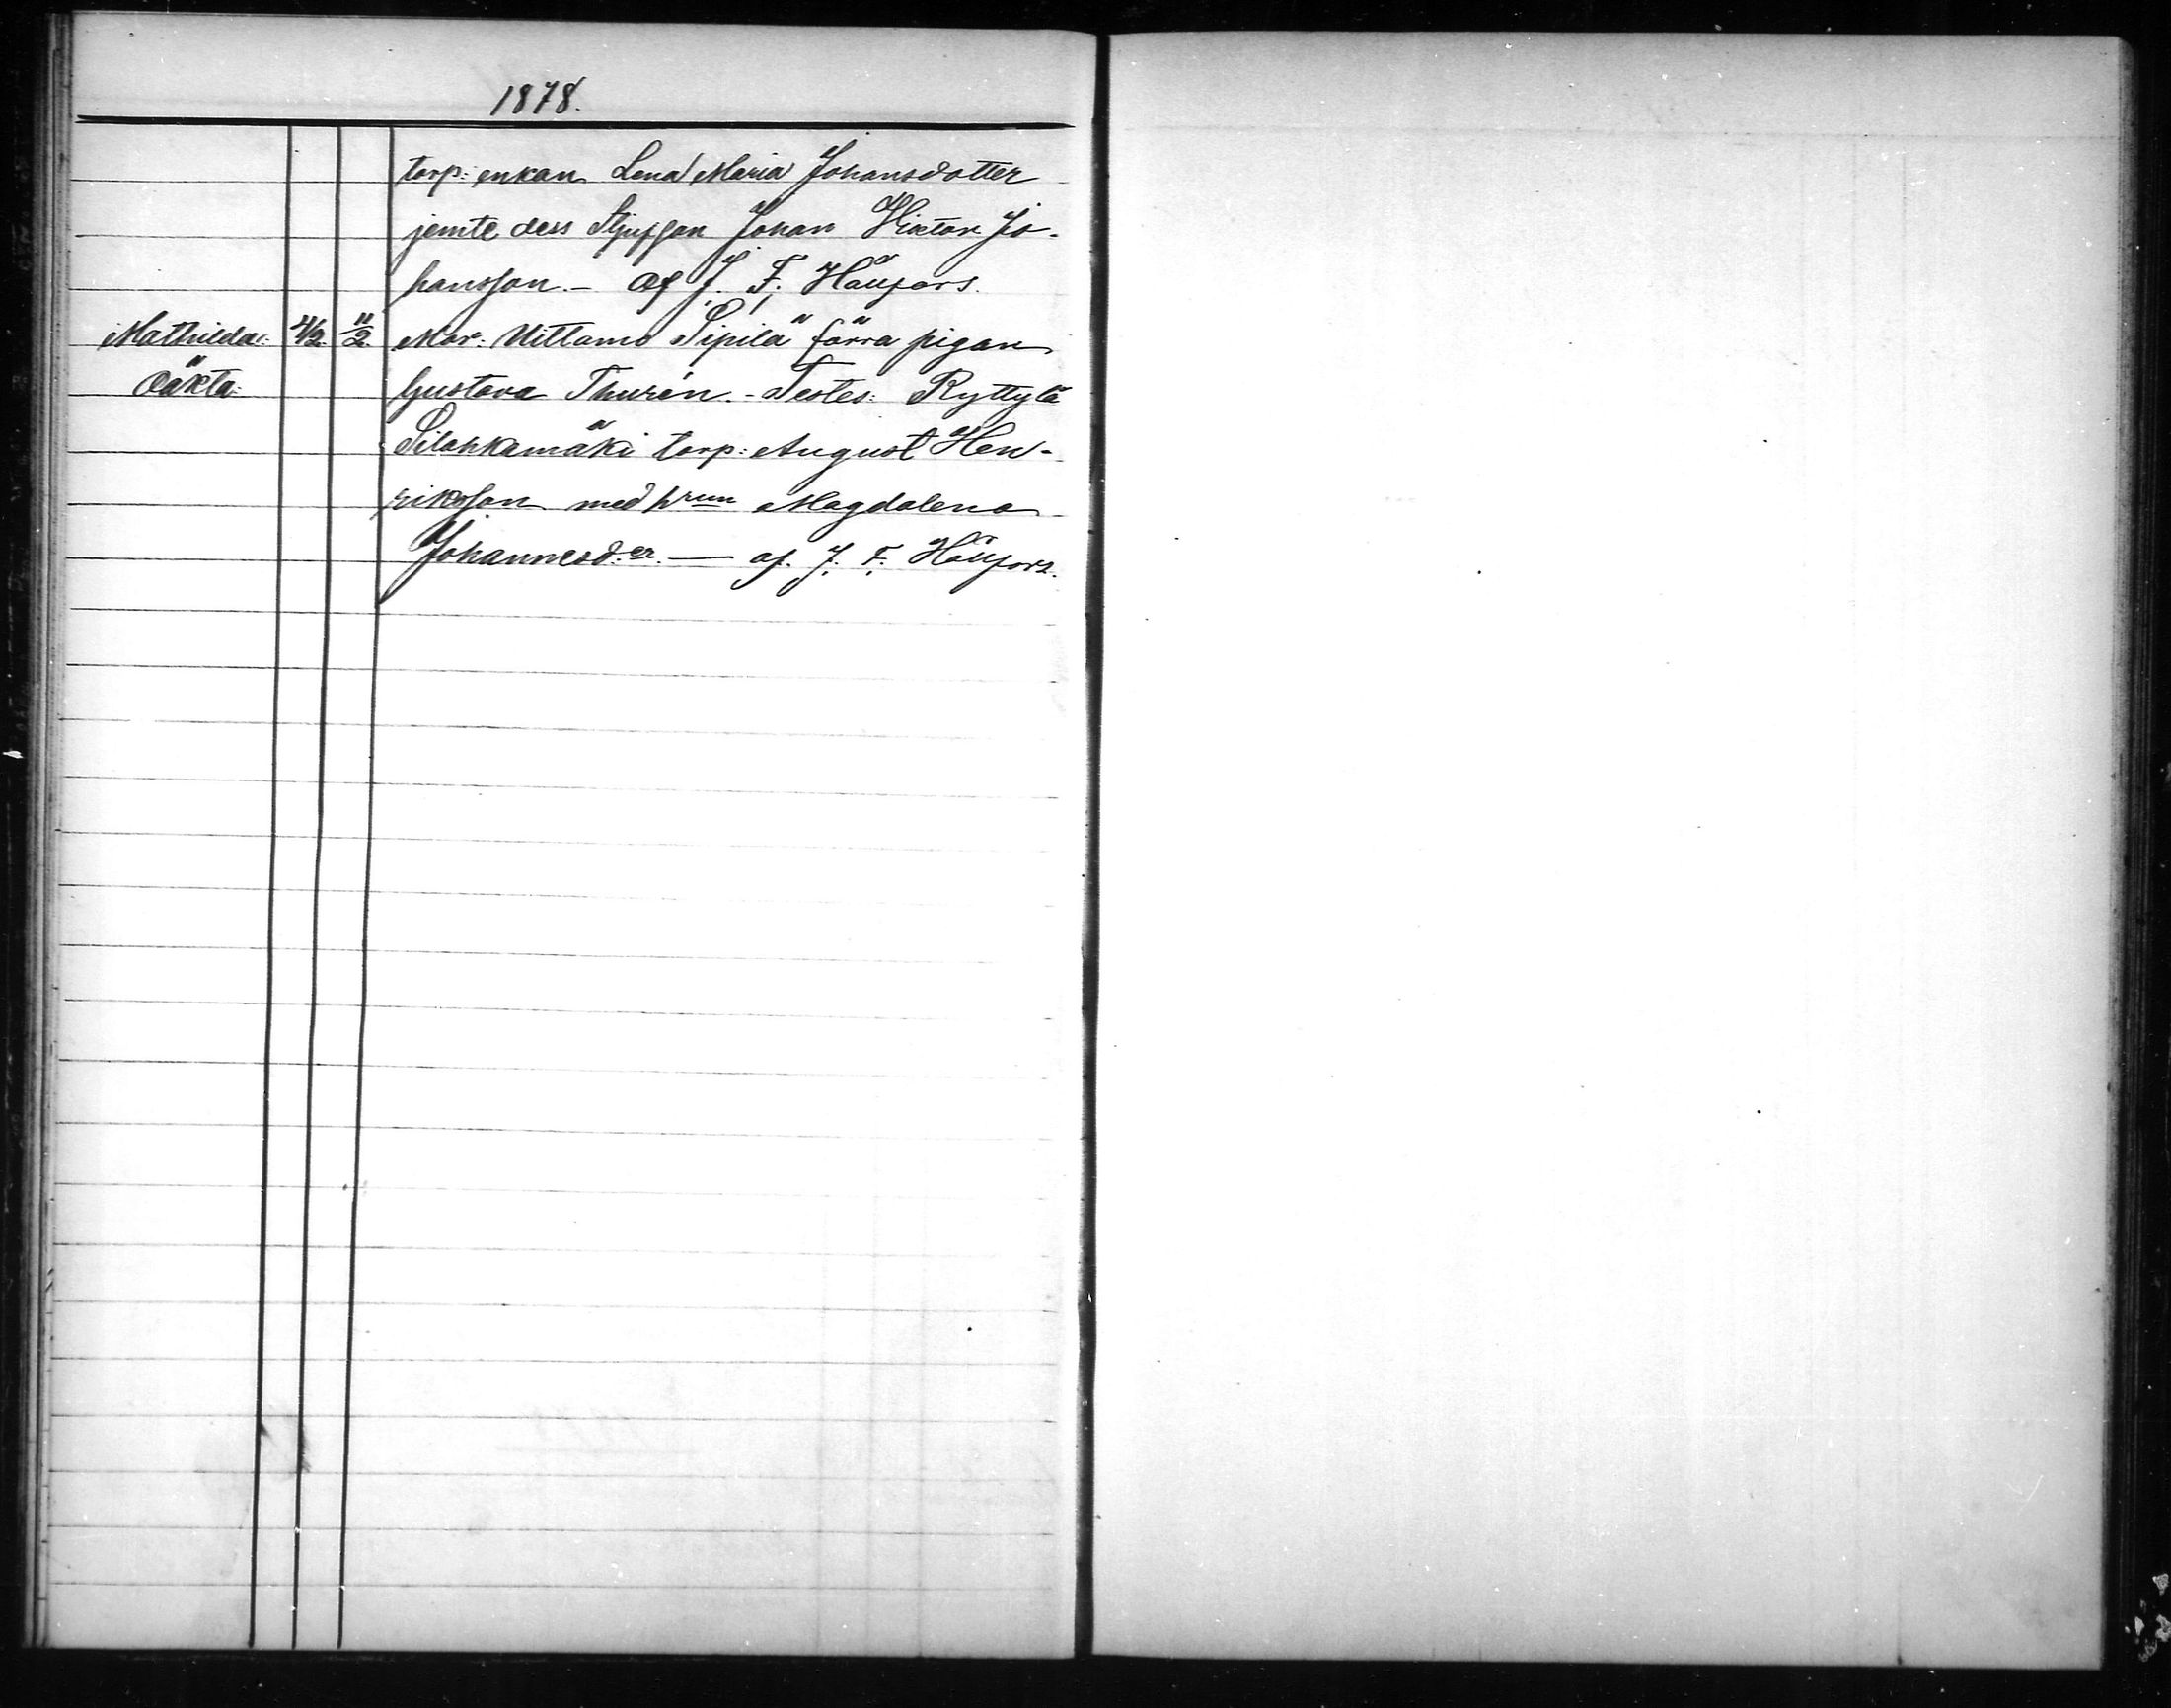 1878.
torp: enkan Lena Maria Johansdotter
jemte dess Stjufson Johan Wiktor Jo-
hansson. - af J. F. Häyfors.
Mathilda: 4/2. 11/2. Mor: Uittamo Sipilä förra pigan
Oäkta: Gustava Thurén. - Testes: Ryttylä
Silahkamäki torp: August Hen-
riksson med hrun Magdalena
Johannesd:er. — af. J. F. Häyfors.